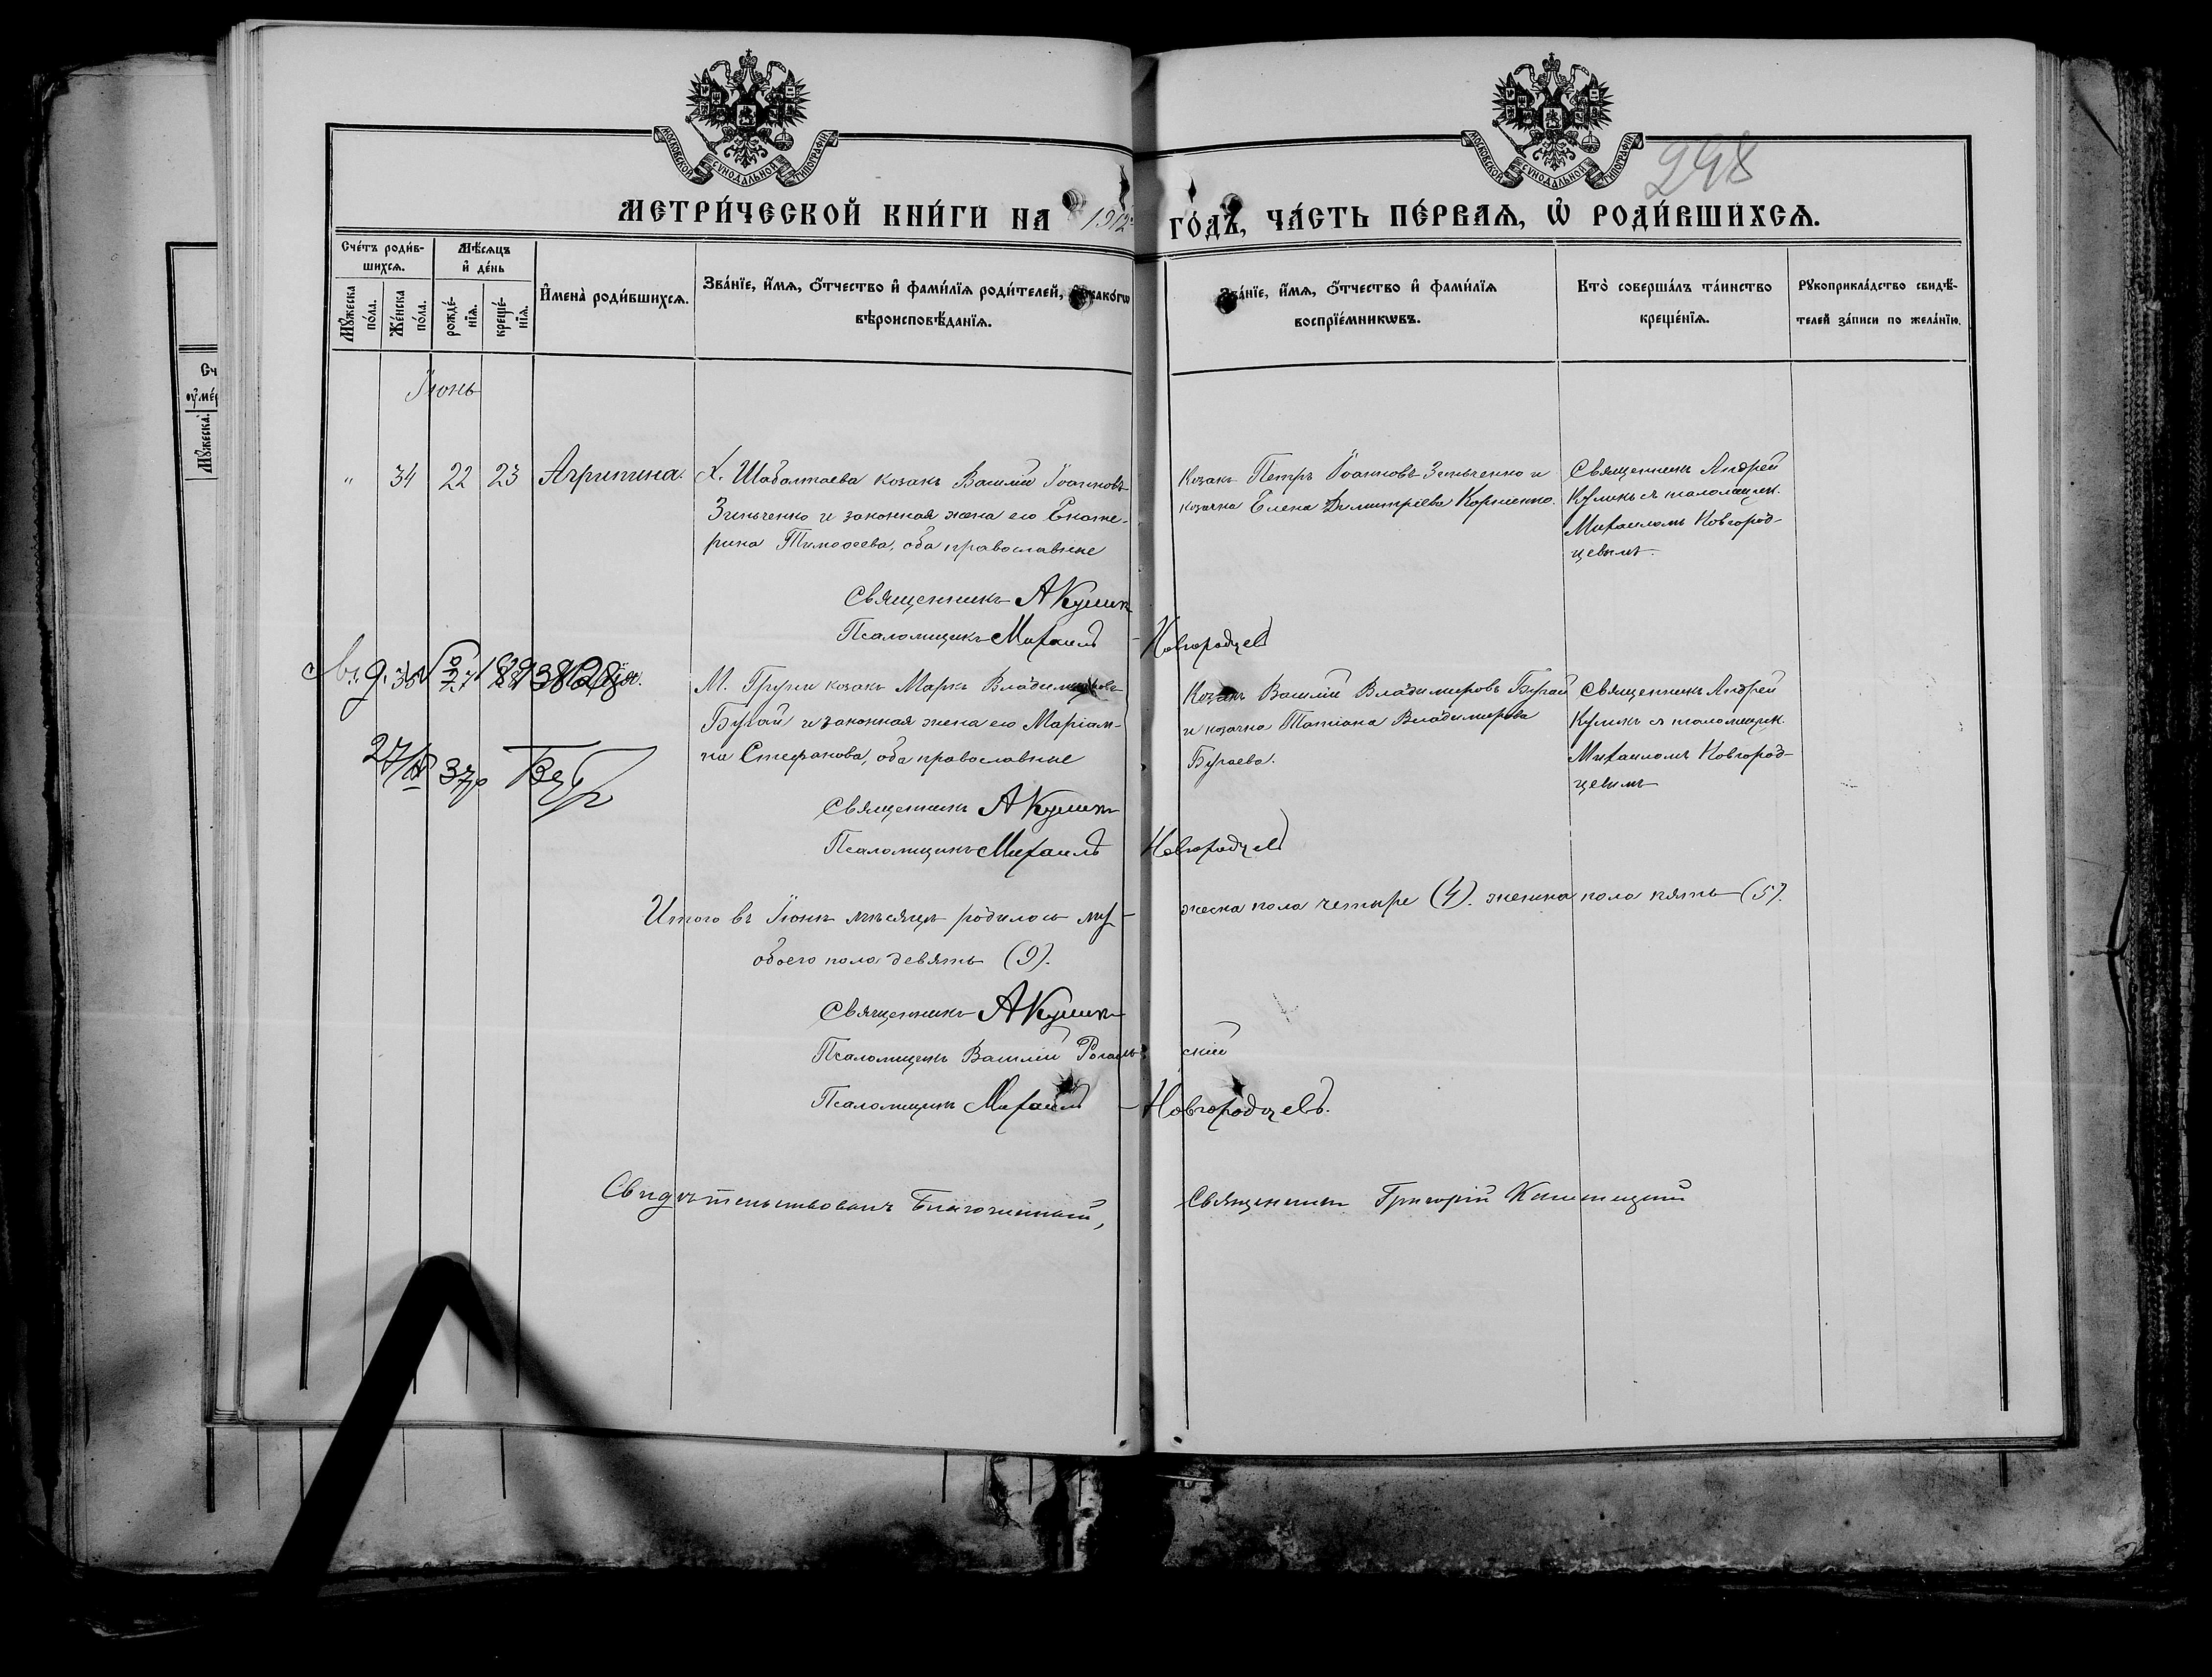 МОСКОВСКОЙ СУНОДАЛЬНОЙ ТИПОГРАФІИ
МОСКОВСКОЙ СУНОДАЛЬНОЙ ТИПОГРАФІИ
298
МЕТРИ́ЧЕСКОЙ КНИ́ГИ НА 1912 ГО́ДЪ, ЧА́СТЬ ПЕ́РВАЯ, Ѿ РОДИ́ВШИХСЯ.
Сче́тъ роди́в-
шихся.
Мѣ́сяцъ
и҆ де́нь
Мꙋ́жеска
по́ла.
Же́нска
по́ла.
рожде́-
нїя.
креще́-
нїя.
И҆мена̀ роди́вшихся.
Зва́нїе, и҆́мя, ѻ҆́тчество и҆ фами́лїя роди́телей, и҆ како́гѡ
вѣроисповѣ́данїя.
Зва́нїе, и҆́мя, ѻ҆́тчество и҆ фами́лїя
воспрїе́мникѡвъ.
Кто̀ соверша́лъ та́инство
креще́нїя.
Рꙋкоприкла́дство свидѣ́-
телей за́писи по жела́нїю.
Іюнь
" 34 22 23 Агрипина.
Х. Шабалтаева козакъ Василій Іоанновъ
Зинченко и законная жена его Екате-
рина Тимофеева, оба православные
Козакъ Петръ Іоанновъ Зинченко и
козачка Елена Димитріева Корніенко.
Священникъ Андрей
Куликъ съ псаломщик.
Михаиломъ Новгород-
цевымъ.
Священникъ А Кулик
Псаломщикъ Михаилъ Новгородцевъ
М. Груни козакъ Маркъ Владимировъ
Бугай и законная жена его Маріам-
на Стефанова, оба православные
Козакъ Василій Владимировъ Бугай
и козачка Татіана Владимирова
Бугаева.
Священникъ Андрей
Куликъ съ псаломщик.
Михаиломъ Новгород-
цевымъ
27/IV 37р
Священникъ А Кулик
Псаломщикъ Михаилъ Новгородцевъ
Итого въ Іюнѣ мѣсяцѣ родилось му-жеска пола четыре (4). женска пола пять (5).
обоего пола девять (9).
Священникъ А Кулик
Псаломщикъ Василій Рогальскій
Псаломщикъ Михаилъ Новгородцевъ.
Свидѣтельствовалъ Благочинный, Священникъ Григорій
Сч
оумер
Мꙋ́жеска